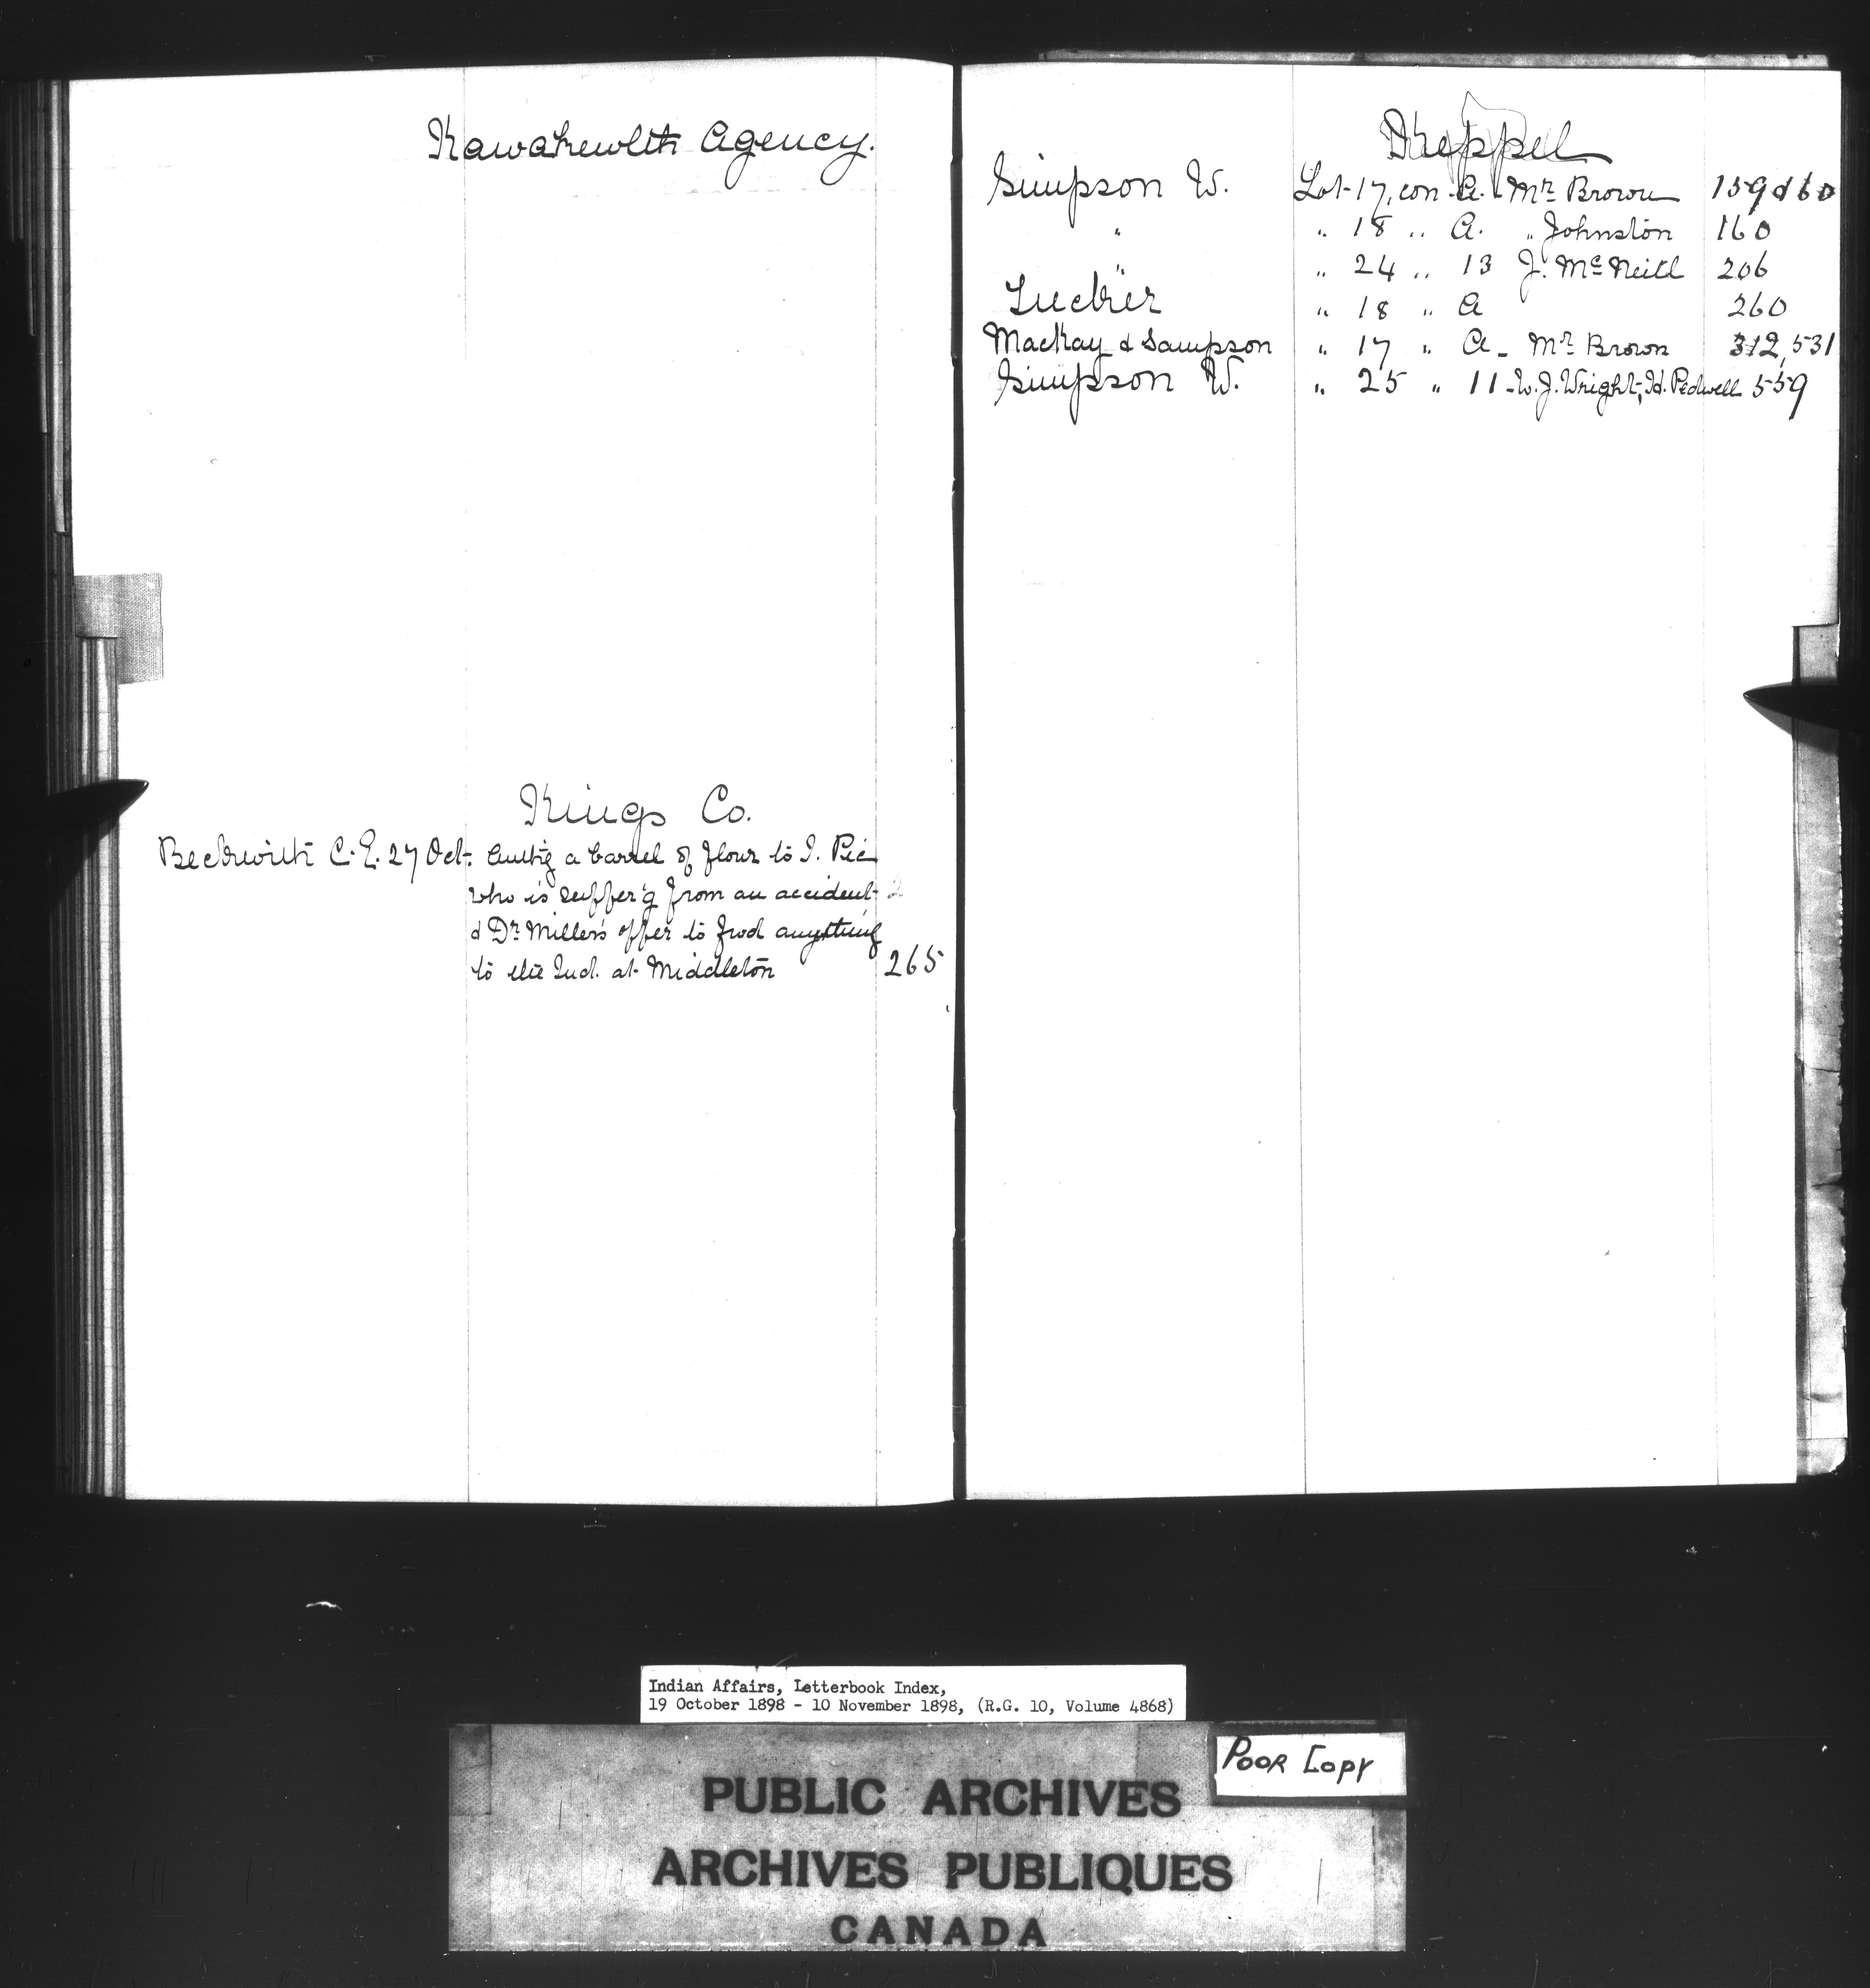 Kawakewlth Agency.
Kings Co.
Beckwith C.E. 27 Oct. Authg a barrel of flour to I. Pic
who is suffer'g from an accident 2
& Dr. Miller's offer to fwd anything
to the Ind. at Middleton 265
Keppel
Simpson W. Lot 17, con A. Mr. Brown 159 & 60
" " 18 " A. " Johnston 160
" " 24 " 13 J. McNeill 206
" 18 " A 260
MacKay & Sampson " 17 " A - Mr. Brown 312, 531
Simpson W. " 25 " 11 - W. J. Wright, Hd. Pedwell 559
Indian Affairs, Letterbook Index,
19 October 1898 - 10 November 1898, (R.G. 10, Volume 4868)
Poor Copy
PUBLIC ARCHIVES
ARCHIVES PUBLIQUES
CANADA